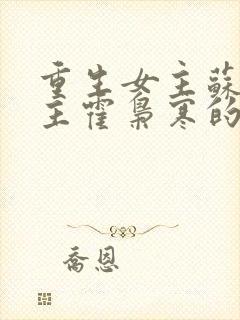 重生女主蘇
主霍梟寒的
喬恩